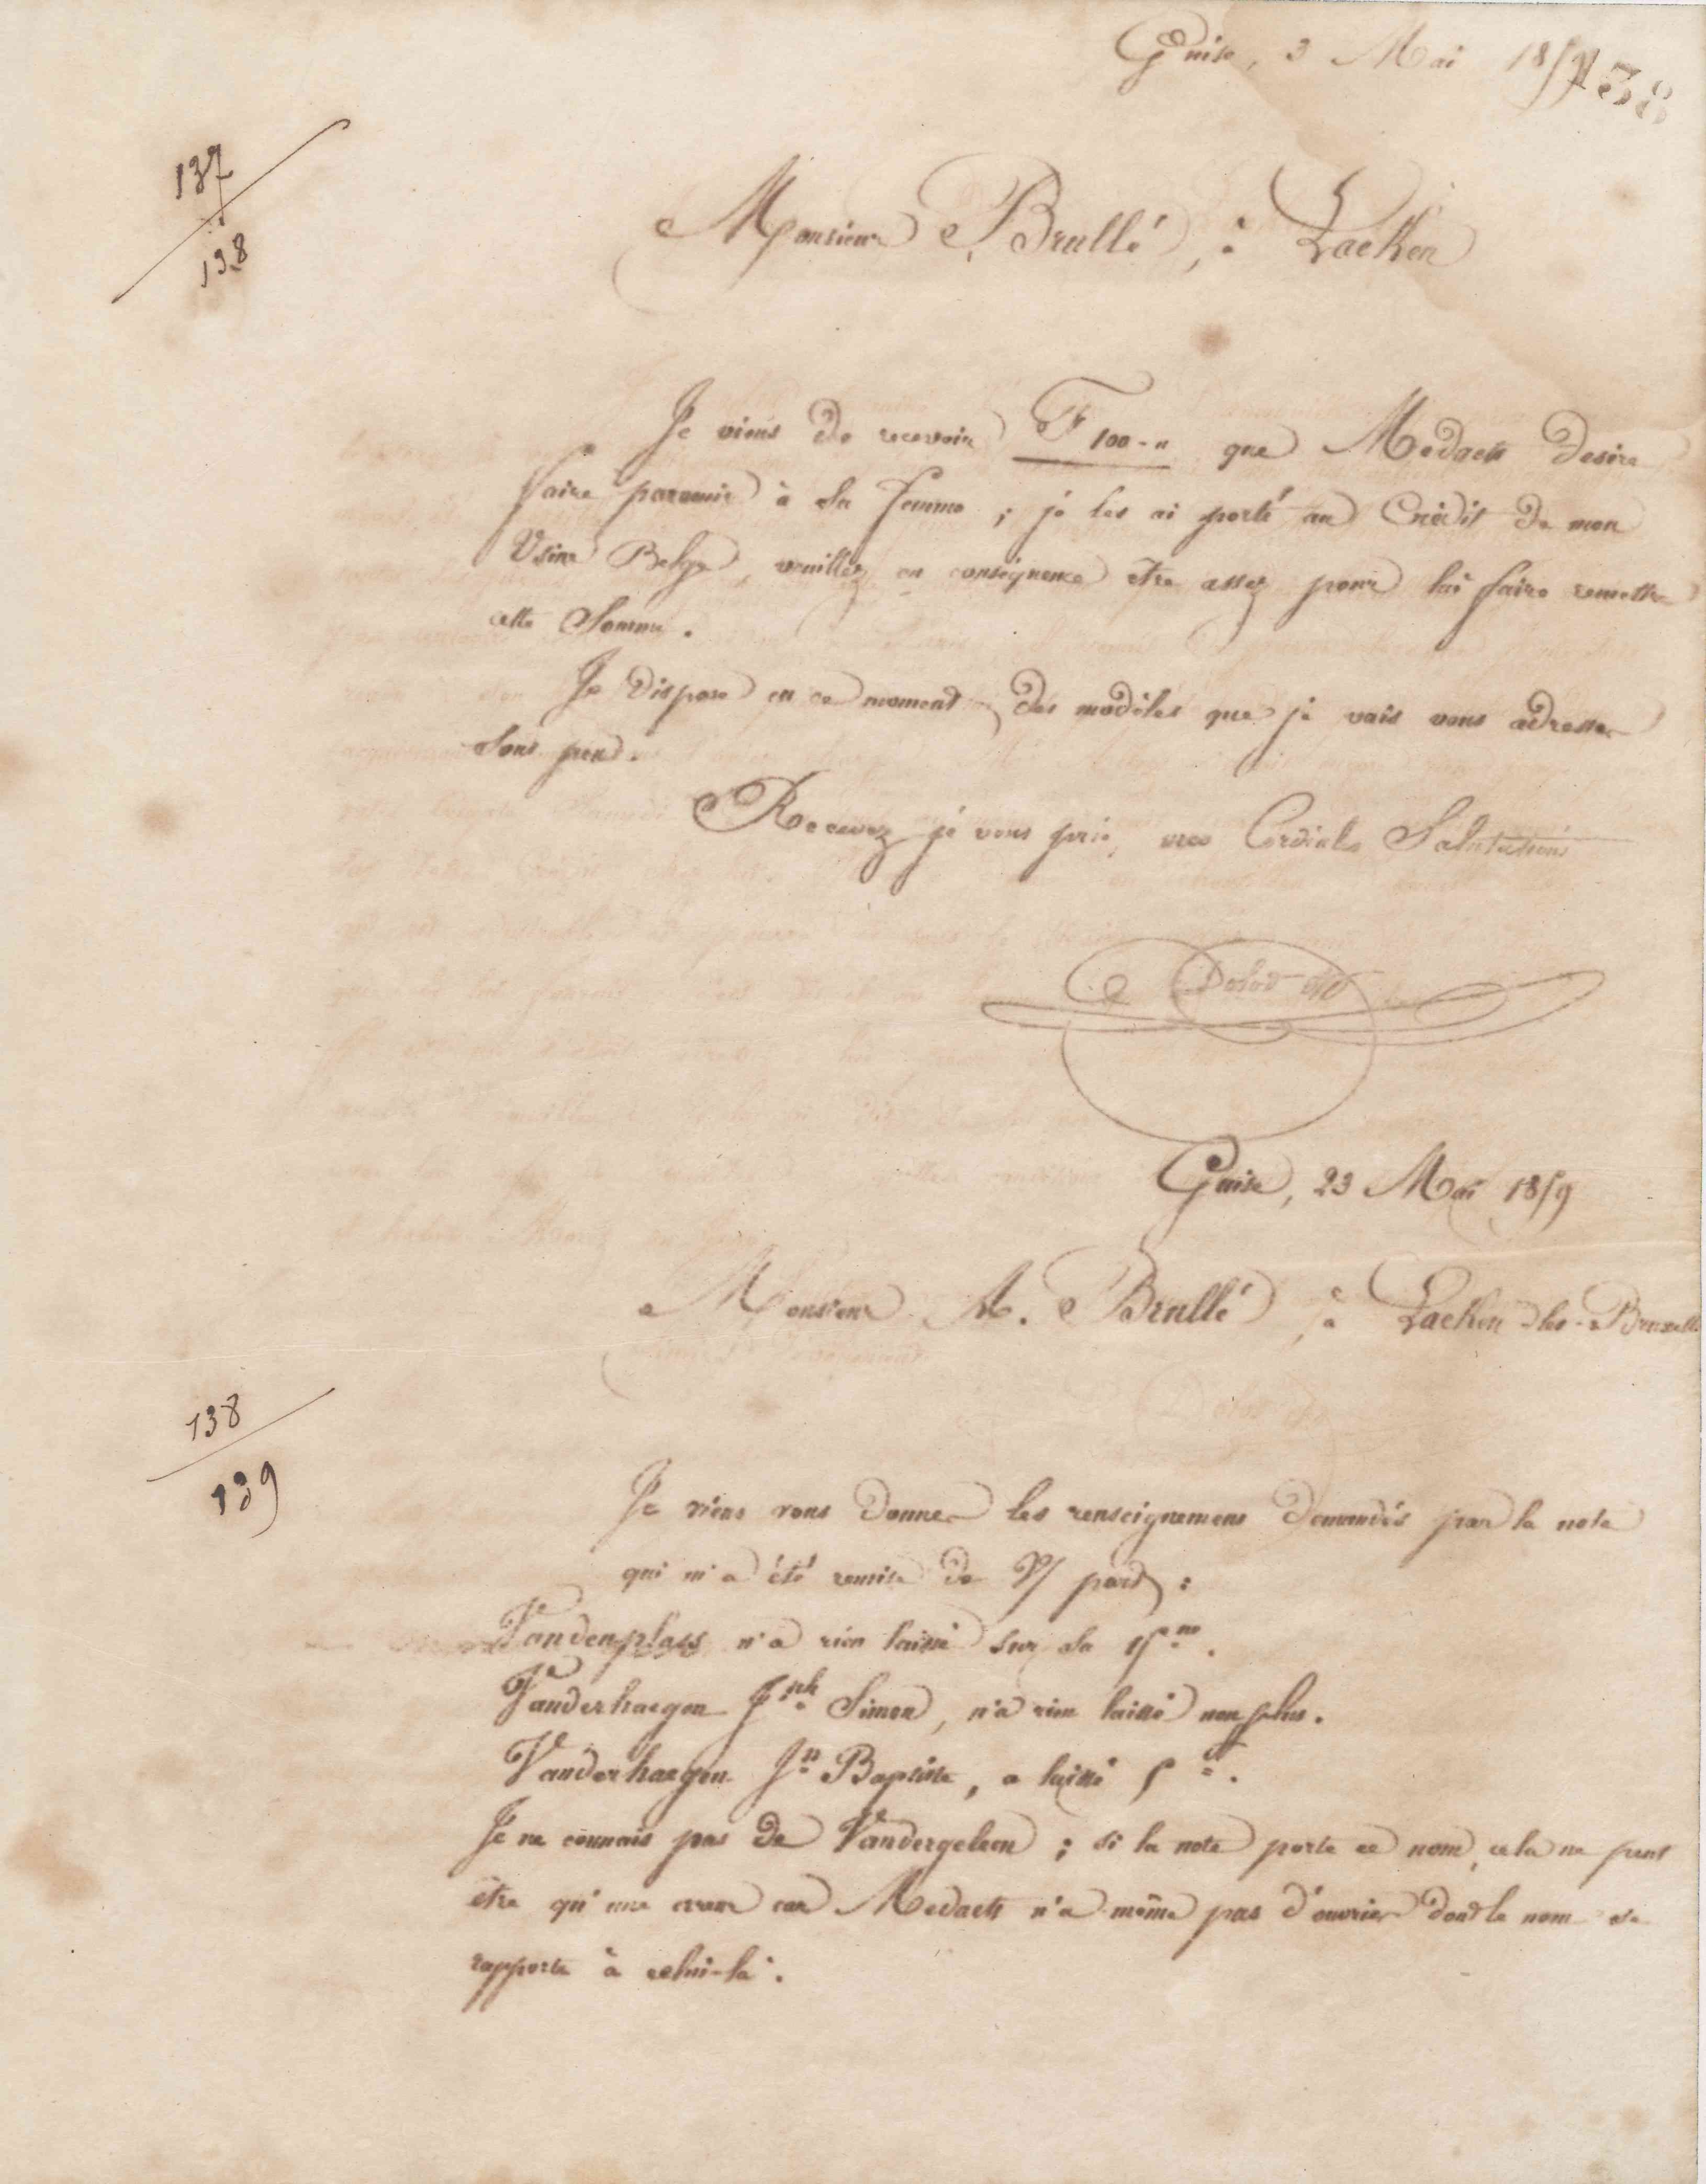 Guise, 3 Mai 1859
138
137
138
Monsieur Brullé, à Laeken
Je viens de recevoir F 100-" que Medaets desire
faire parvenir à sa femme ; je les ai porté au Crédit de mon
Usine Belge, veuillez en conséquence être assez pour lui faire remettre
cette Somme.
Je dispose en ce moment des modèles que je vais vous adresser
sous peu.
Recevez je vous prie, mes Cordiales Salutations
Guise, 23 Mai 1859
Monsieur A. Brullé, à Laeken les-Bruxelles
138
139
Je viens vous donner les renseignemens demandés par la note
qui m'a été remise de V/ part :
Vandenplass n'a rien laissé sur sa
Vanderhaegen Jph Simon, n'a rien laissé non plus.
Vanderhaegen Jn Baptiste, a laissé
Je ne connais pas de Vandergeleen ; si la note porte ce nom, cela ne peut
être qu'une erreur car Medaets n'a même pas d'ouvrier dont le nom se
rapporte à celui-là.